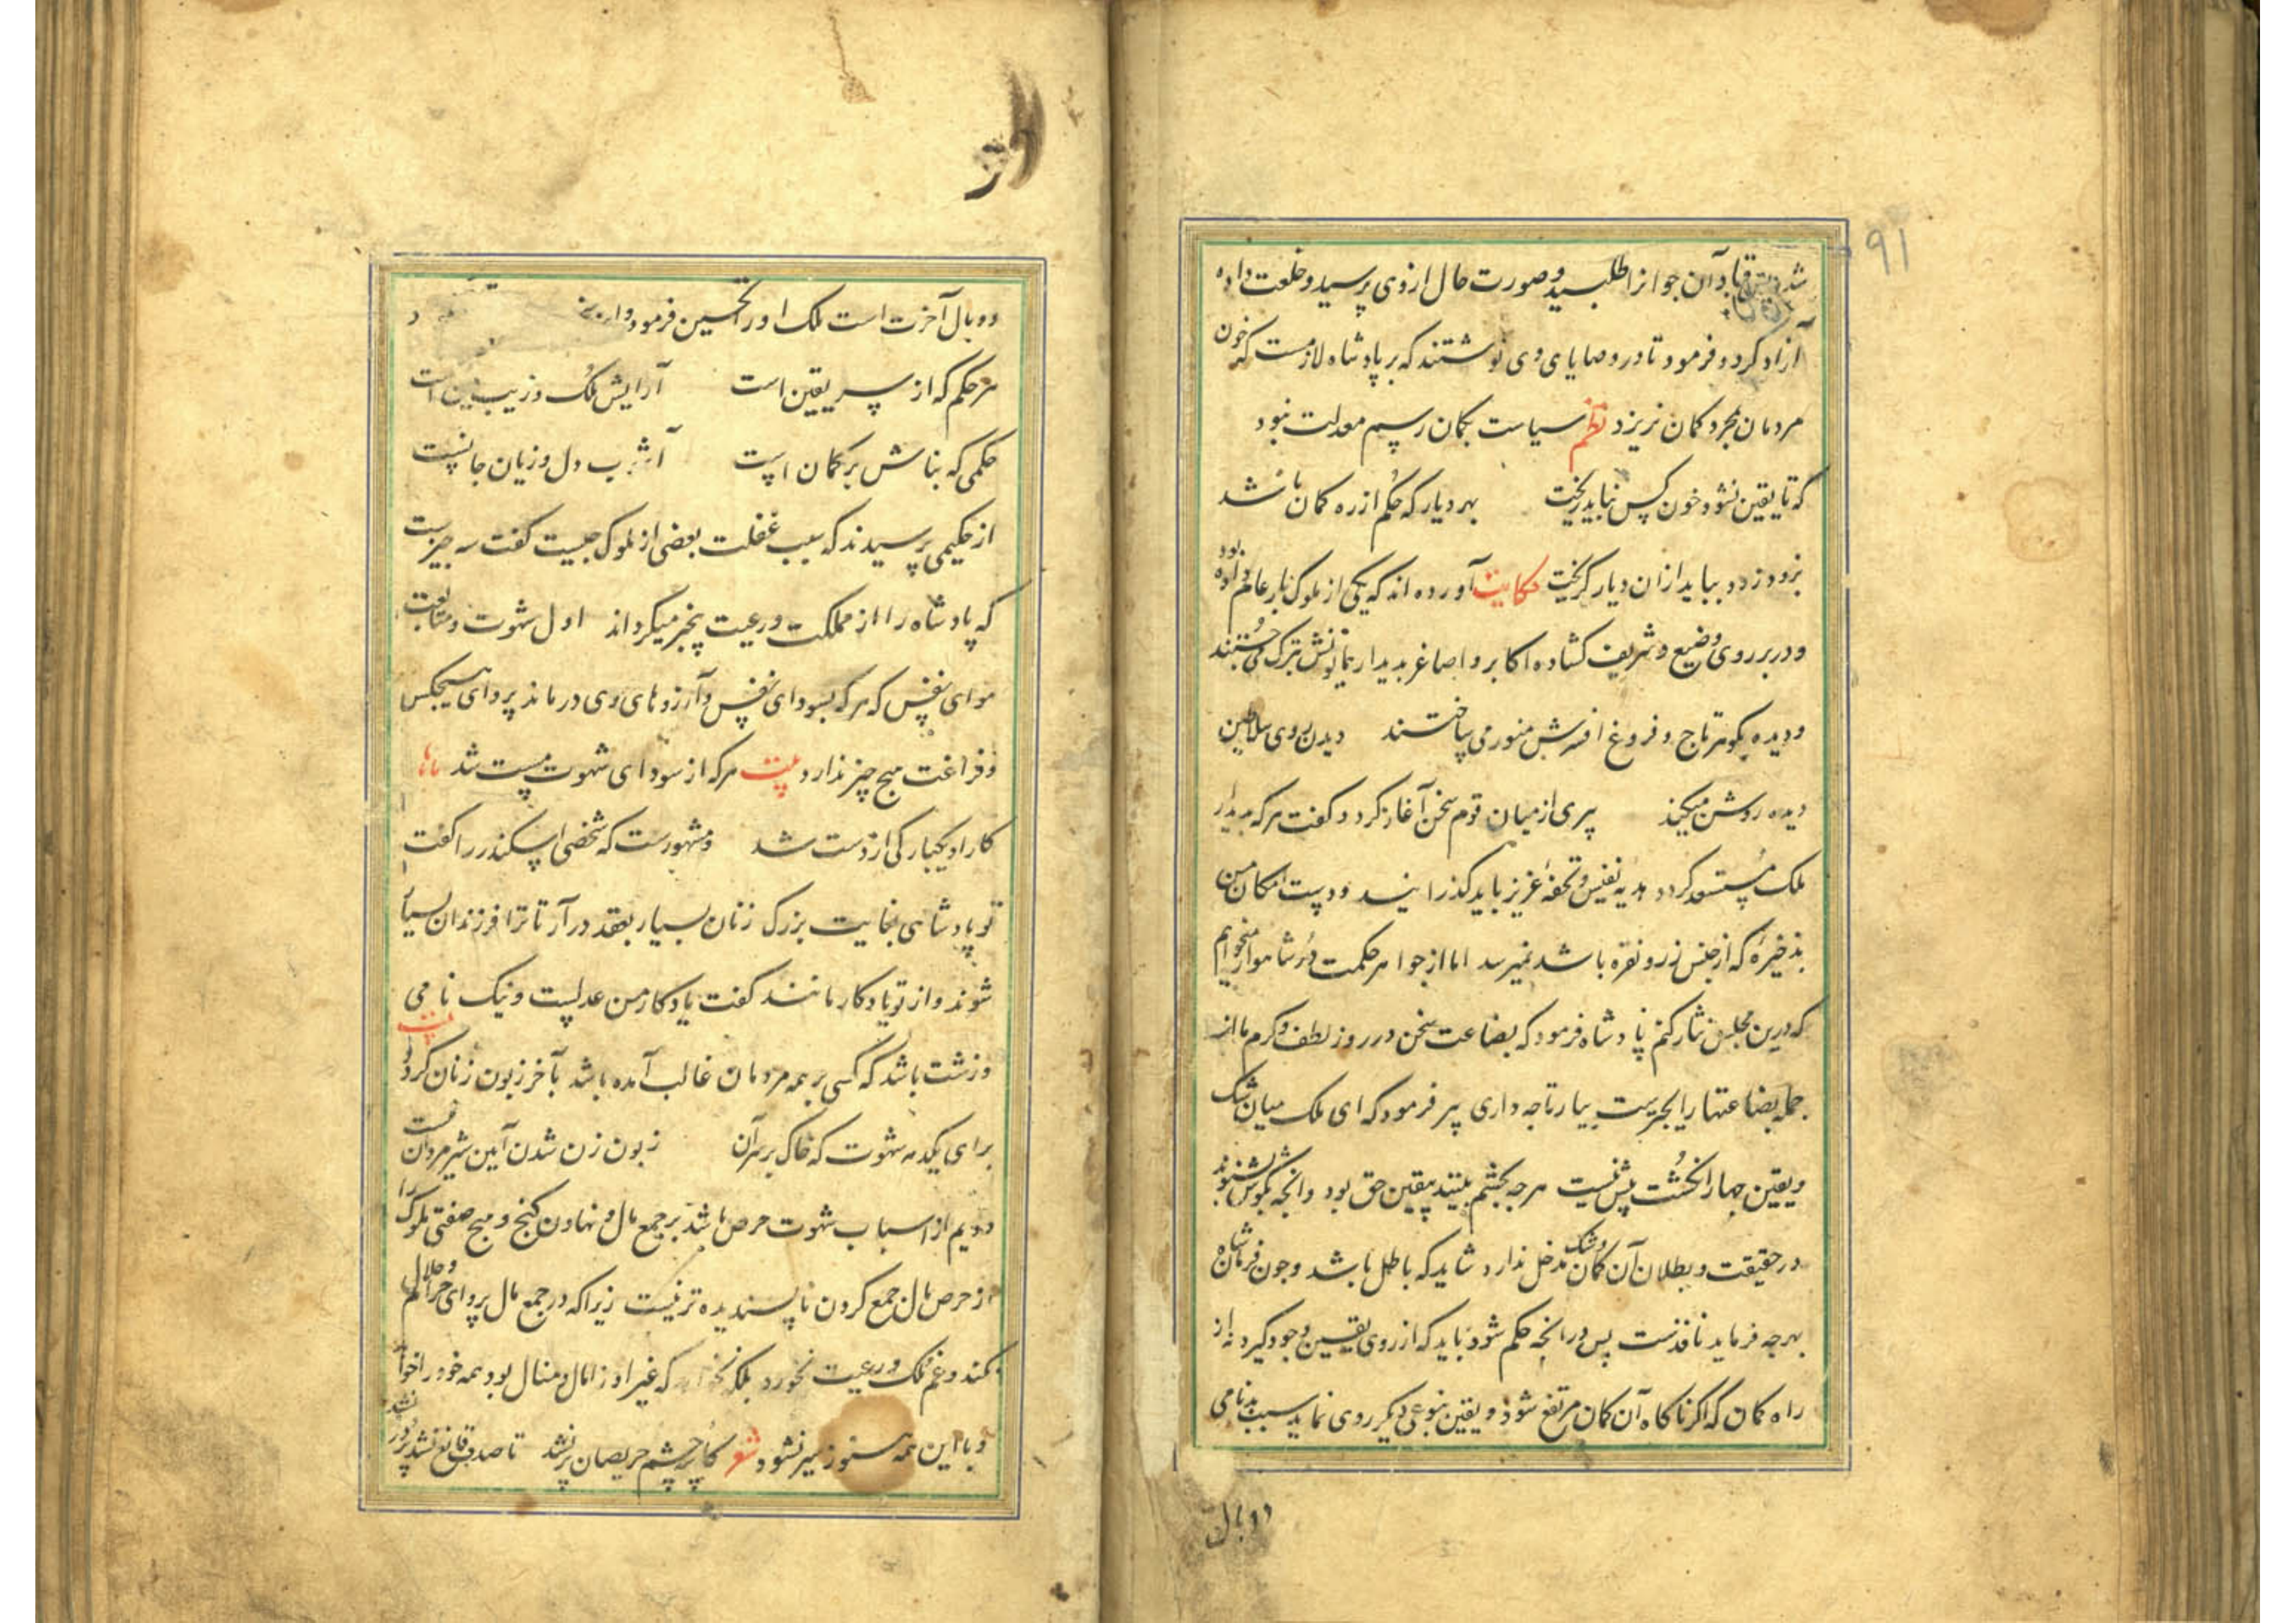 ۹۱
شد قباد آن جوانرا طلبید و صورت حال ازوی پرسید و خلعت داده
آزاد کرد و فرمود تا در وصایای وی نوشتند که بر پادشاه لازمست که خون
مردمان بمجرد کمان نریزد نظم سیاست بکمان رسم معدلت نبود
که تا یقین نشود خون کس نباید ریخت بهر دیار که حکم از ره کمان باشد
بزود زود بباید ازان دیار کریخت حکایت آورده اند که یکی از ملوک بار عام داده بود
و در بر روی وضیع و شریف کشاده اکابر و اصاغر بدیدار تبرک می جستند
و دیده بکوهر تاج و فروغ افسرش منور می ساختند دیدن روی سلاطین
دیده روشن میکند پیری از میان قوم سخن آغاز کرد و کفت هر که بدیدار
ملک مستسعد کردد هدیه نفیس و تحفهٔ عزیز باید کذرانید و دست امکان من
بذخیرهٔ که از جنس زر و نقره باشد نمیرسد اما از جواهر حکمت در شاهوار میخواهم
که درین مجلس نثار کنم پادشاه فرمود که بضاعت سخن در روز لطف و کرم ما از
جمله بضاعتها رایجترست بیار تا چه داری پیر فرمود که ای ملک میان شک
و یقین چهار انکشت بیش نیست هر چه بچشم بینند یقین حق بود و انچه بکوش شنوند
در حقیقت و بطلان آن کمان و شک مدخل ندارد شاید که باطل باشد و چون فرمان شاه
بهر چه فرماید نافذست پس در انچه حکم شود باید که از روی یقین وجود کیرد نه از
راه کمان که اکر ناکاه آن کمان مرتفع شود و یقین بنوعی دیکر روی نماید سبب بدنامی
و وبال
و وبال آخرت است ملک او را تحسین فرمود
هر حکم که از سر یقین است آرایش ملک و زیب دین است
حکمی که بناش بر کمان است آشوب دل و زیان جانست
از حکیمی پرسیدند که سبب غفلت بعضی از ملوک چیست کفت سه چیزست
که پادشاه را از مملکت و رعیت بیخبر میکرداند اول شهوت و متابعت
هوای نفس که هر که بسودای نفس و آرزوهای وی درماند پروای هیچکس
و فراغت هیچ چیز ندارد بیت هر که از سودای شهوت مست شد
کار او یکبارکی از دست شد و مشهورست که شخصی اسکندر را کفت
تو پادشاهی بغایت بزرک زنان بسیار بعقد در آر تا ترا فرزندان بسیار
شوند و از تو یادکار مانند کفت یادکار من عدلست و نیک نامی
و زشت باشد که کسی بر همه مردمان غالب آمده باشد بآخر زبون زنان کردد بیت
برای یکدمه شهوت که خاک بر سر آن زبون زن شدن آیین شیر مردان نیست
دویم از اسباب شهوت حرص باشد بر جمع مال و نهادن کنج و هیچ صفتی ملوک را
از حرص مال جمع کردن ناپسندیده تر نیست زیرا که در جمع مال پروای حرام و حلال
نکند و غم ملک و رعیت نخورد بلکه نخواهد که غیر او را مال و منال بود همه خود را خواهد
و با این همه هنوز سیر نشود شعر کاسه چشم حریصان پر نشد تا صدف قانع نشد پر در نشد